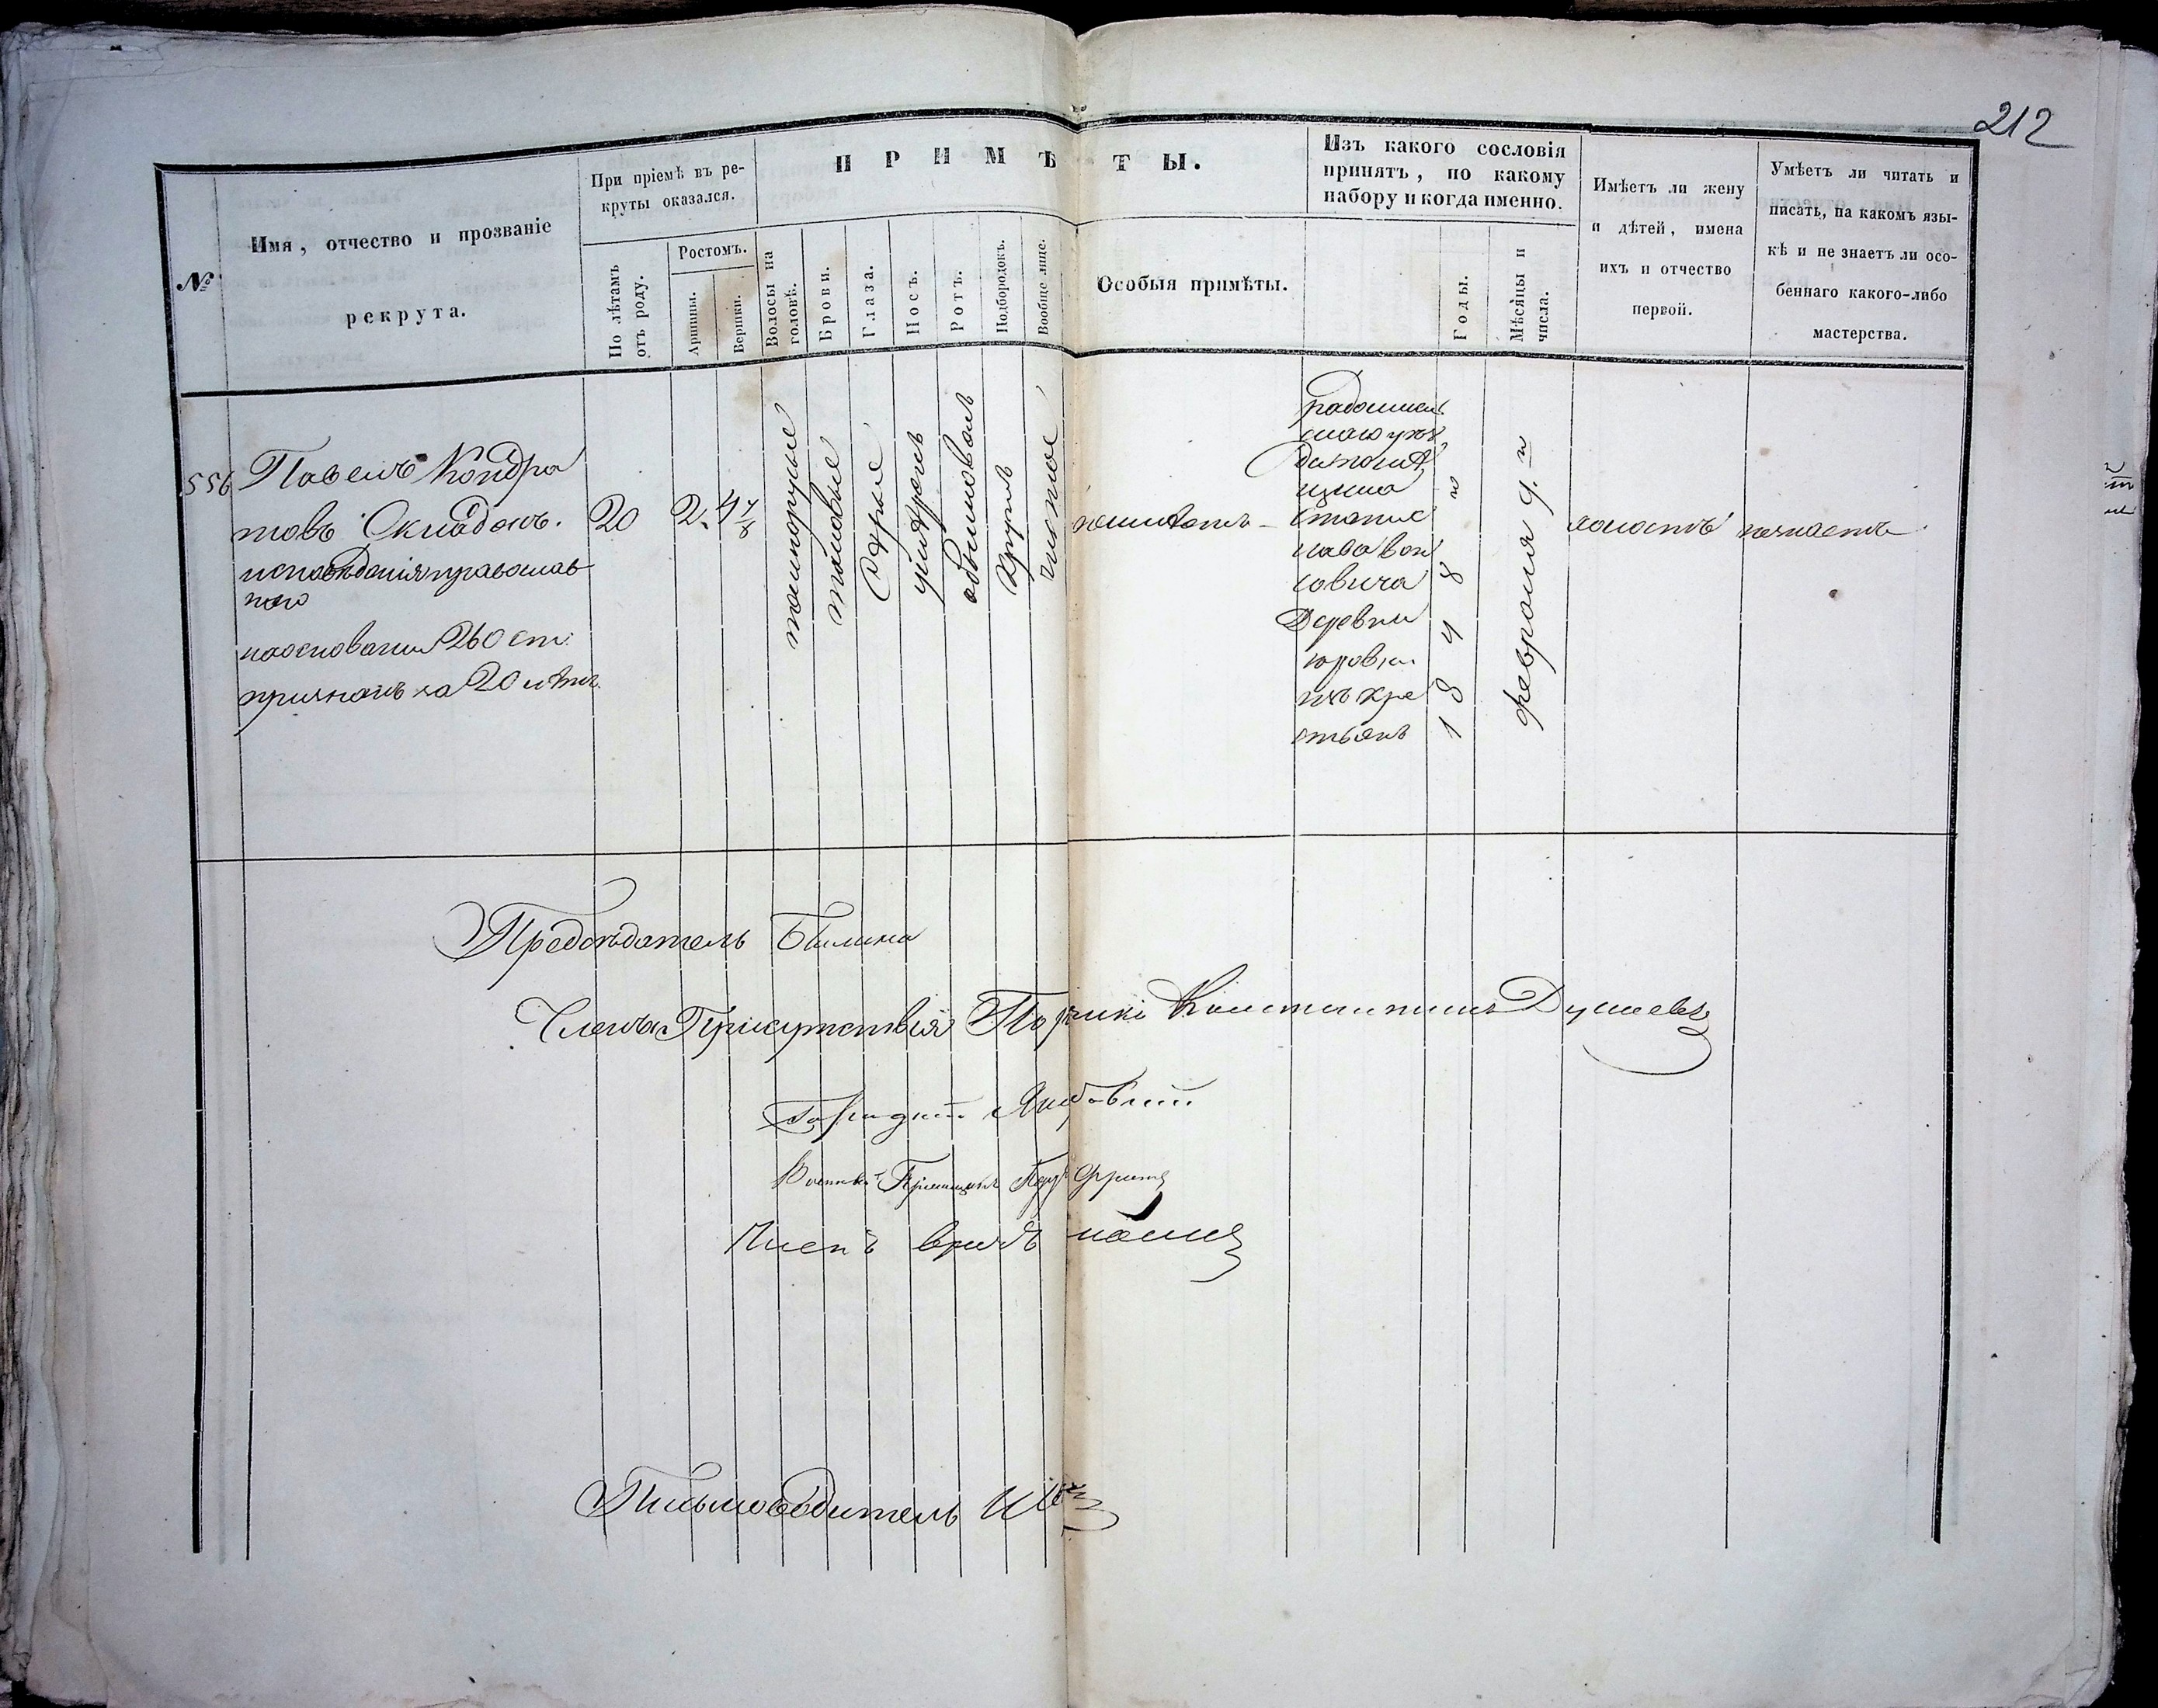 212
№
Имя, отчество и прозваніе
рекрута.
При пріемѣ въ ре-
круты оказался.
По лѣтамъ
отъ роду.
Ростомъ.
Аршины.
Вершки.
ПРИМѢТЫ.
Волосы на
головѣ.
Брови.
Глаза.
Носъ.
Ротъ.
Подбородокъ.
Вообще лице.
Особыя примѣты.
Изъ какого сословія
принятъ, по какому
набору и когда именно.
Годы.
Мѣсяцы и
числа.
Имѣетъ ли жену
и дѣтей, имена
ихъ и отчество
первой.
Умѣетъ ли читать и
писать, на какомъ язы-
кѣ и не знаетъ ли осо-
беннаго какого-либо
мастерства.
556
Павелъ Кондра
товъ
исповѣданія православ
наго
на основаніи 260 ст:
признанъ за 20 лѣтн.
20
2.
4 7/8
темнорусые
таковые
Сѣрые
умѣренъ
обыкновенъ
Круглъ
чистое
неимѣетъ
Станис
лава Вон
совича
Деревни
изъ кре
стьянъ
1848
февраля 9.
холостъ
незнаетъ
Предсѣдатель
Члены Присутствія Константинъ
Военный Пріемщикъ
Членъ врачъ
Письмоводитель